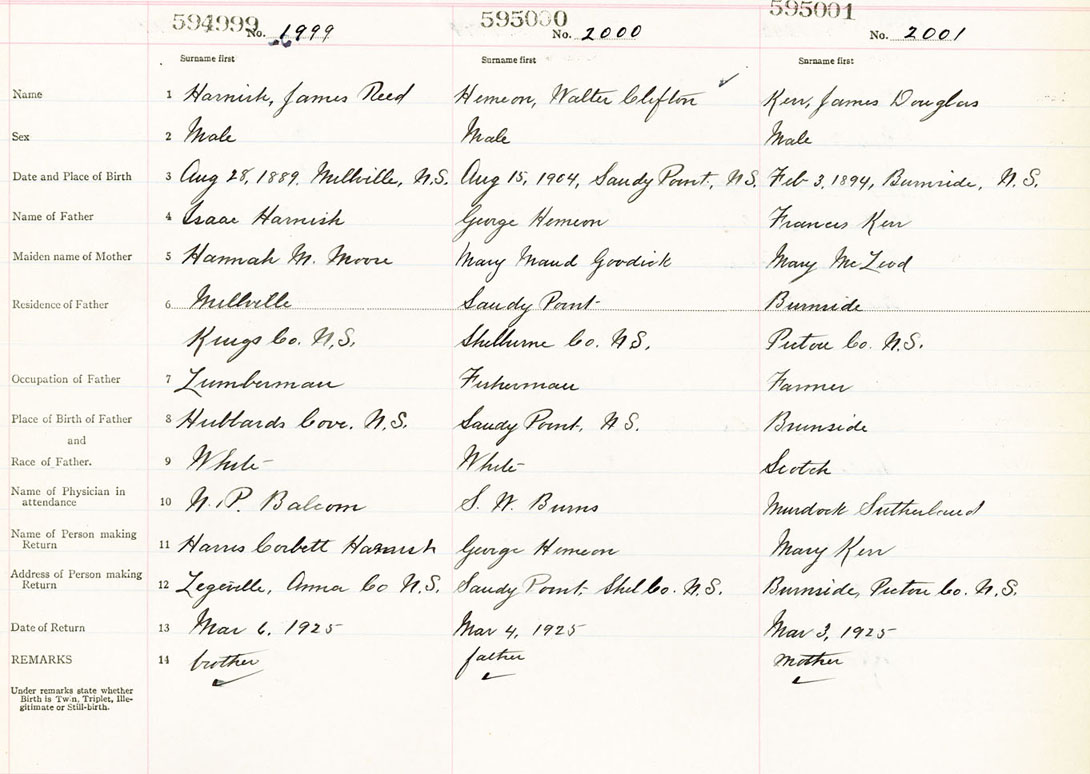 594999 595000 595001
No. 1999 No. 2000 No. 2001
Surname first Surname first Surname first
Name 1 Harnish, James Reed Hemeon, Walter Clifton Kerr, James Douglas
Sex 2 Male Male Male
Date and Place of Birth 3 Aug 28, 1889. Millville, N.S. Aug 15, 1904, Sandy Point, N.S. Feb 3, 1894, Burnside, N.S.
Name of Father 4 Isaac Harnish George Hemeon Frances Kerr
Maiden name of Mother 5 Hannah M. Moore Mary Maud Goodick Mary McLeod
Residence of Father 6 Millville Sandy Point Burnside
Kings Co. N.S. Shelburne Co. N.S. Pictou Co. N.S.
Occupation of Father 7 Lumberman Fisherman Farmer
Place of Birth of Father 8 Hubbards Cove. N.S. Sandy Point, N.S. Brunside
and
Race of Father. 9 White White Scotch
Name of Physician in
attendance 10 N. P. Balcom S. W. Burns Murdock Sutherland
Name of Person making
Return 11 Harris Corbett Harnish George Hemeon Mary Kerr
Address of Person making
Return 12 Anna Co N.S. Sandy Point Shel Co. N.S. Burnside, Pictou Co. N.S.
Date of Return 13 Mar 6, 1925 Mar 4, 1925 Mar 3, 1925
REMARKS 14 brother father mother
Under remarks state whether
Birth is Twin, Triplet, Ille-
gitimate or Still-birth.